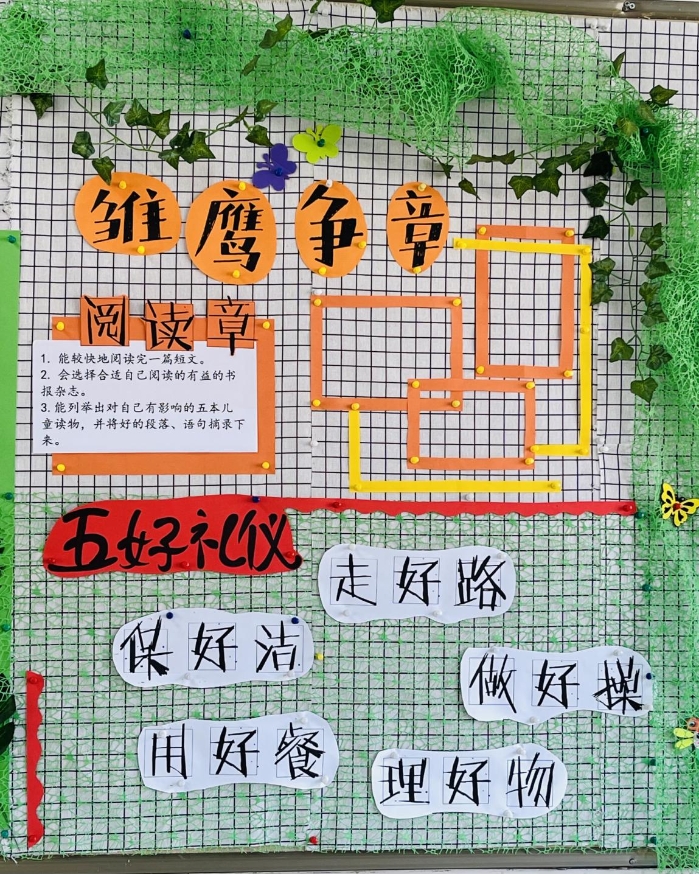 雏鹰争章
阅读章
1. 能较快地阅读完一篇短文。
2. 会选择合适自己阅读的有益的书
报杂志。
3.能列举出对自己有影响的五本儿
童读物，并将好的段落、语句摘录下
来。
五好礼仪
走好路
保好洁
做好操
用好餐
理好物